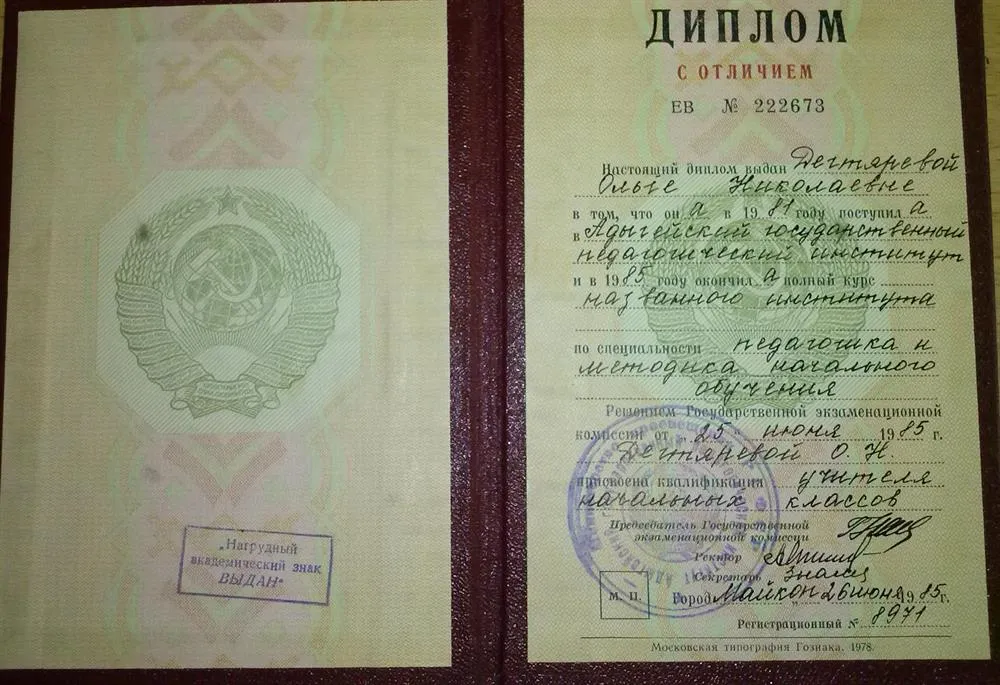 „Нагрудный
академический знак
ВЫДАН"
ДИПЛОМ
С ОТЛИЧИЕМ
ЕВ № 222673
Настоящий диплом выдан Дегтяревой
Ольге Николаевне
в том, что он а в 1981 году поступил а
в Адыгейский государственный
педагогический институт
и в 1985 году окончил а полный курс
названного института
по специальности педагогика и
методика начального
обучения
Решением Государственной экзаменационной
комиссии от „25" июня 1985 г.
Дегтяревой О. Н.
присвоена квалификация учителя
начальных классов
Председатель Государственной
экзаменационной комиссии
Ректор
Секретарь
М. П.
Город Майкоп 26 июня 1985г.
Регистрационный № 8971
Московская типография Гознака. 1978.